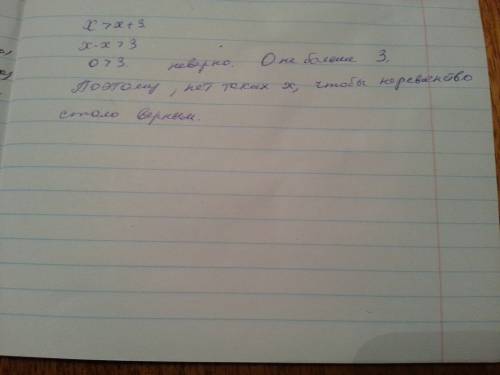 x > x + 3
x - x > 3
0 > 3. неверно. 0 не больше 3.
Поэтому, нет таких x, чтобы неравенство
стало верным.